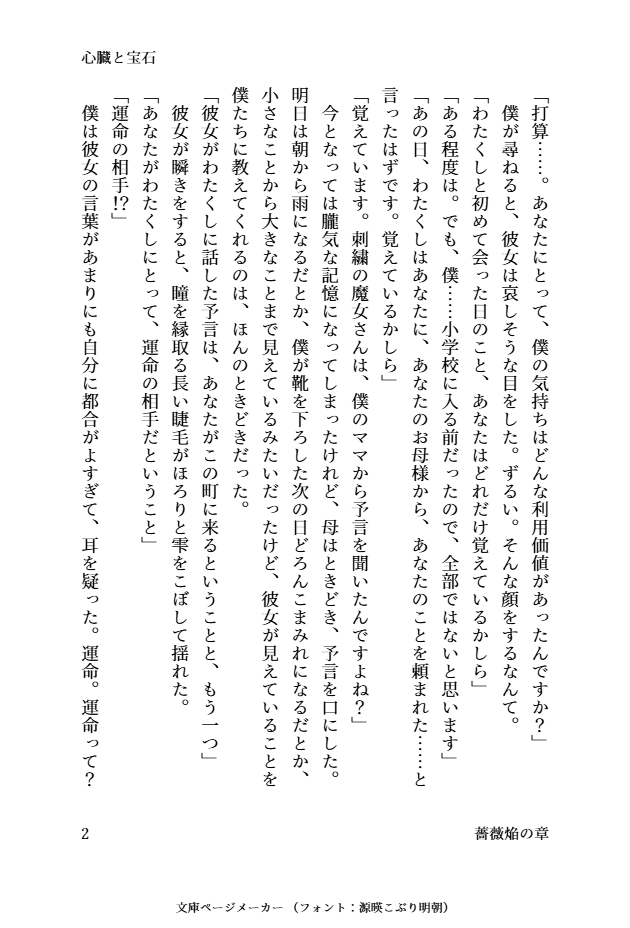 心臓と宝石
「打算……。あなたにとって、僕の気持ちはどんな利用価値があったんですか？」
　僕が尋ねると、彼女は哀しそうな目をした。ずるい。そんな顔をするなんて。
「わたくしと初めて会った日のこと、あなたはどれだけ覚えているかしら」
「ある程度は。でも、僕……小学校に入る前だったので、全部ではないと思います」
「あの日、わたくしはあなたに、あなたのお母様から、あなたのことを頼まれた……と
言ったはずです。覚えているかしら」
「覚えています。刺繍の魔女さんは、僕のママから予言を聞いたんですよね？」
　今となっては朧気な記憶になってしまったけれど、母はときどき、予言を口にした。
明日は朝から雨になるだとか、僕が靴を下ろした次の日どろんこまみれになるだとか、
小さなことから大きなことまで見えているみたいだったけど、彼女が見えていることを
僕たちに教えてくれるのは、ほんのときどきだった。
「彼女がわたくしに話した予言は、あなたがこの町に来るということと、もう一つ」
　彼女が瞬きをすると、瞳を縁取る長い睫毛がほろりと雫をこぼして揺れた。
「あなたがわたくしにとって、運命の相手だということ」
「運命の相手!?」
　僕は彼女の言葉があまりにも自分に都合がよすぎて、耳を疑った。運命。運命って？
薔薇焔の章
2
文庫ページメーカー（フォント：源暎こぶり明朝）